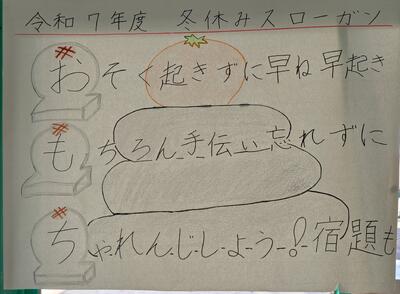 令和7年度 冬休みスローガン
おそく起きずに早ね早起き
もちろん手伝い忘れずに
ちゃれんじしよう!宿題も